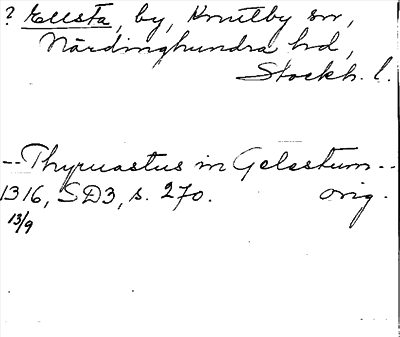 ? Ellsta, by, Knutby sn,
Närdinghundra hd,
Stockh. l.
--Thyruastus in Gelestum--
1316, SD3, s. 270. orig.
13/9